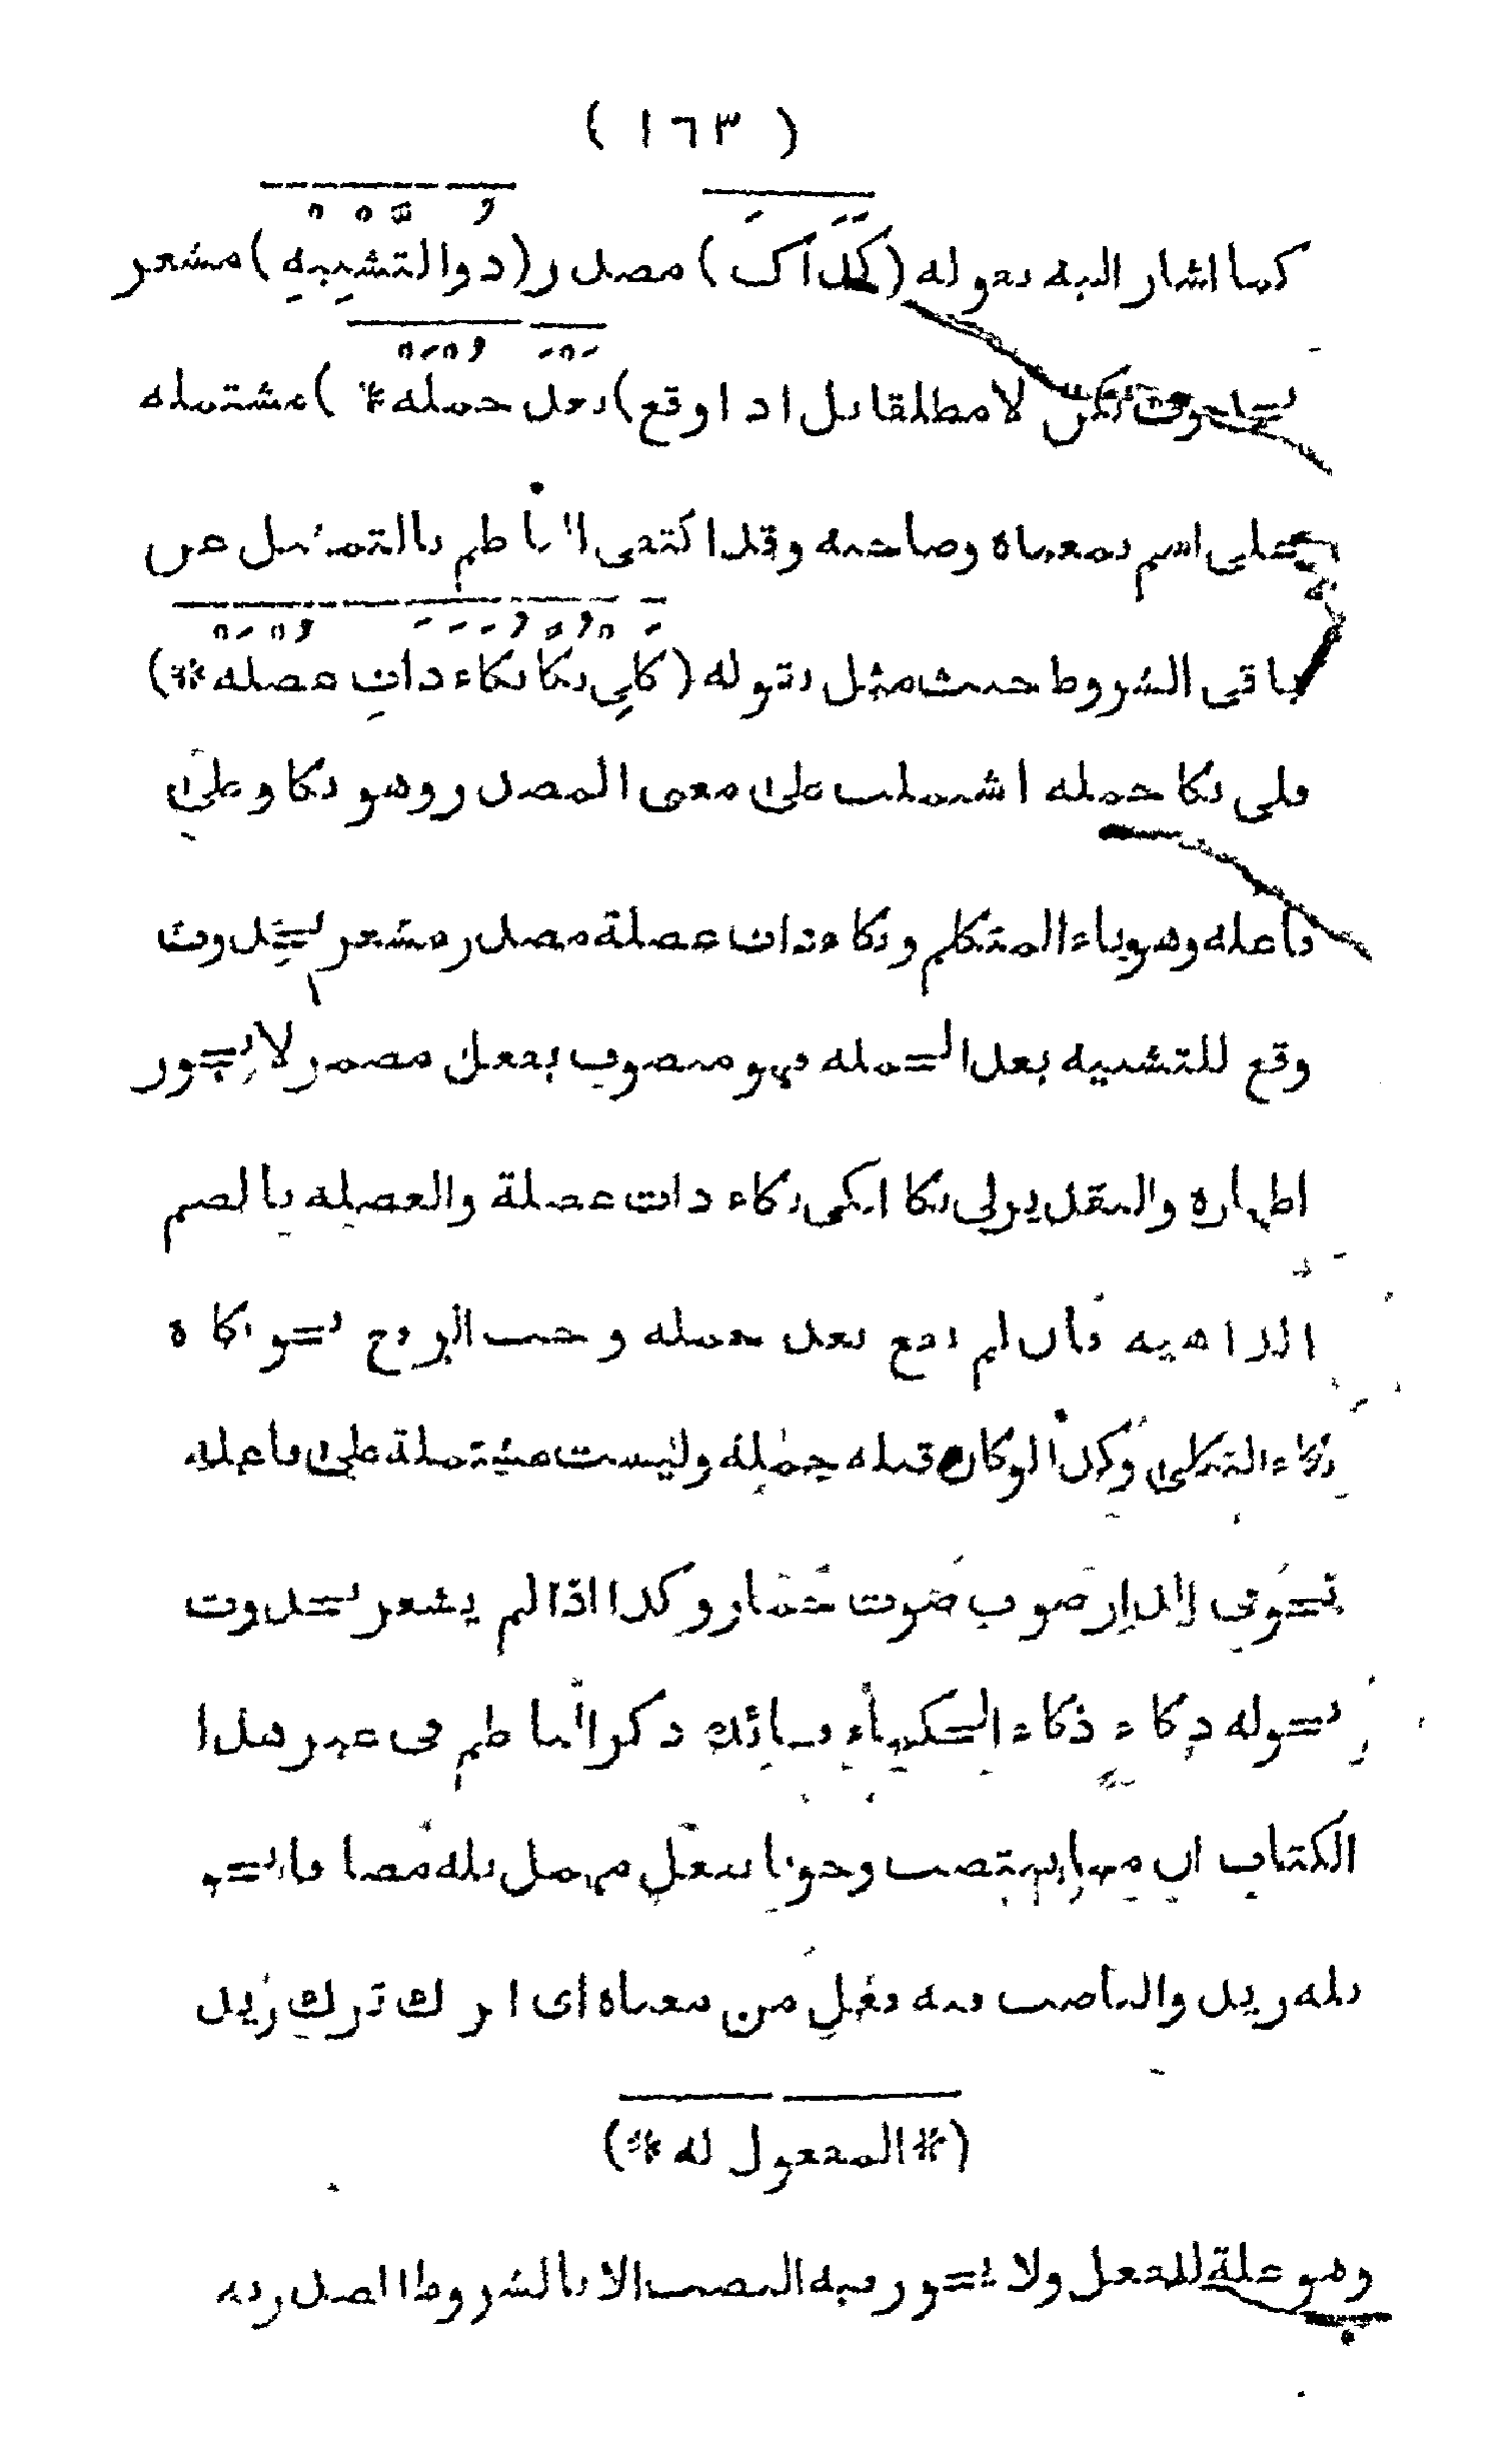 ( ١٦٣ )
كما اشار اليه بقوله (كَذَاكَ) مصدر (ذُوالتَّشْبِيهِ) مشعر
بحدوث لكن لا مطلقا بل اذا وقع (بَعْدَ جُمْلَهْ *) مشتمله
على اسم بمعناه وصاحبه وقد اكتفى الناظم بالتمثيل عن
باقى الشروط حيث مثل بقوله (كَلِي بُكًا بُكَاءَ ذَاتِ عُضْلَهْ *)
فلى بكا جمله اشتملت على معنى المصدر وهو بكا وعلى
فاعله وهو ياء المتكلم وبكاء ذات عضلة مصدر مشعر بحدوث
وقع للتشبيه بعد الجمله فهو منصوب بفعل مضمر لا يجوز
اظهاره والتقدير لى بكا ابكى بكاء ذات عضلة والعضله بالضم
الداهيه فان لم يقع بعد جمله وجب الرفع نحو بكاه
بكاء الثكلى وكذا لو كان قبله جملة وليست مشتملة على فاعله
نحو فى الدار صوت صوت حمار وكذا اذا لم يشعر بحدوث
نحو له ذكاء ذكاء الحكماء فائدة ذكر الناظم فى غير هذا
الكتاب ان مما ينتصب وجوبا بفعل مهمل بله مضافا نحو
بله زيد والناصب فيه فعل من معناه اى اترك ترك زيد
(* المفعول له *)
وهو علة للفعل ولا يجوز فيه النصب الا بالشروط